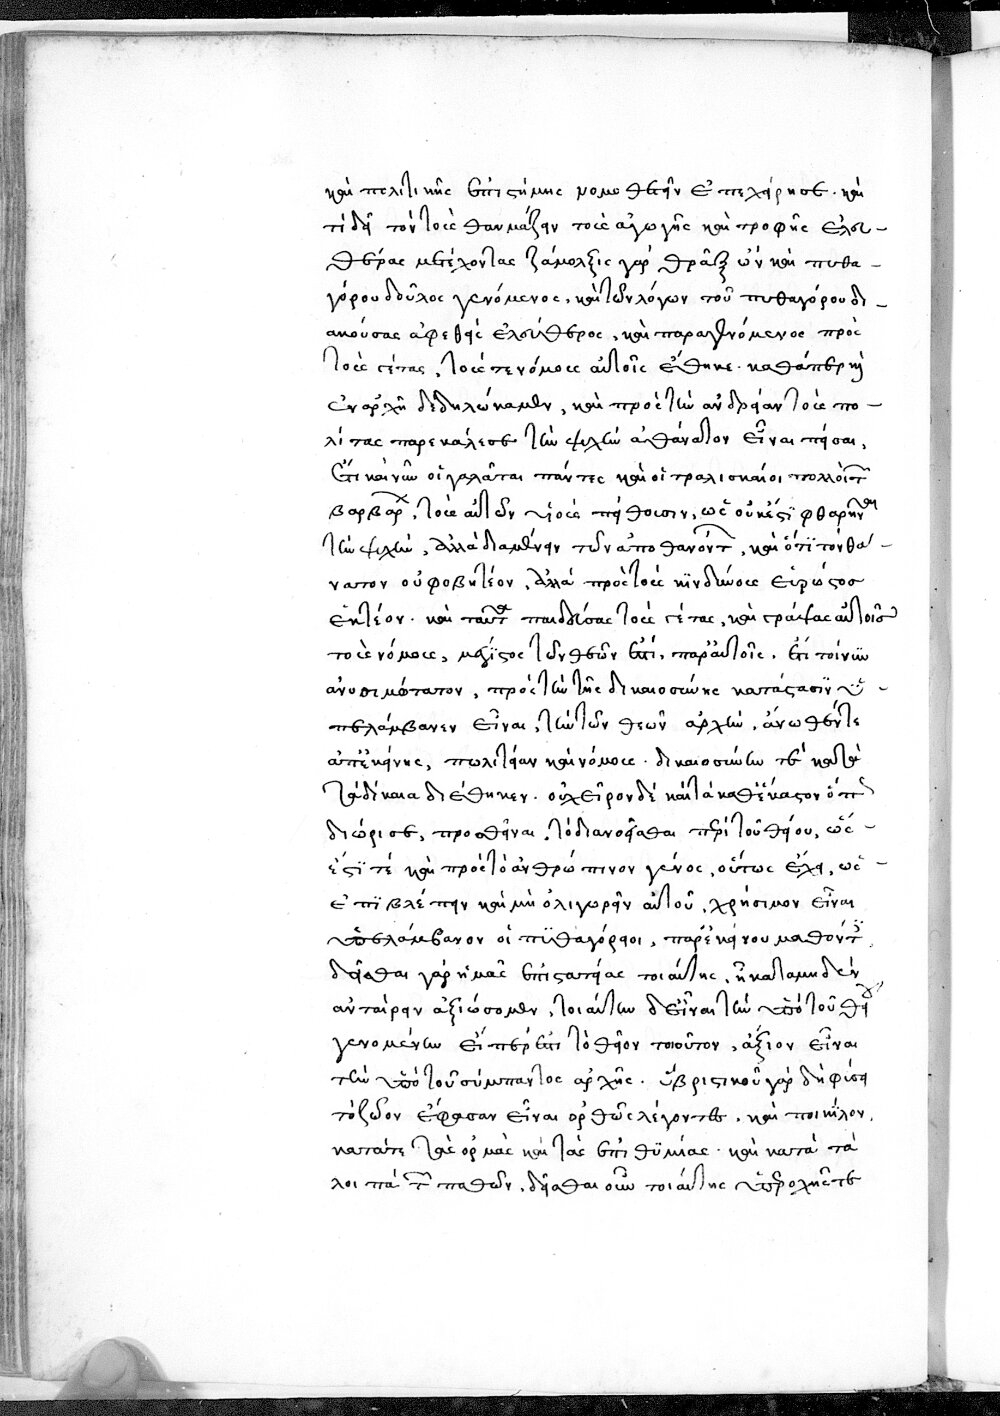 καὶ πολιτικῆς ἐπιστήμης νομοθετεῖν ἐπεχείρησε. καὶ
τί δεῖ τούτους θαυμάζειν τοὺς ἀγωγῆς καὶ τροφῆς ἐλευ-
θέρας μετέχοντας ζάμολξις γὰρ θρᾷξ ὢν καὶ πυθα-
γόρου δοῦλος γενόμενος, καὶ τῶν λόγων τοῦ πυθαγόρου δι-
ακούσας ἀφεθεὶς ἐλεύθερος, καὶ παραγενόμενος πρὸς
τοὺς γέτας, τούς τε νόμους αὐτοῖς ἔθηκε. καθάπερ καὶ
ἐν ἀρχῇ δεδηλώκαμεν, καὶ πρὸς τὴν ἀνδρείαν τοὺς πο-
λίτας παρεκάλεσε τὴν ψυχὴν ἀθάνατον εἶναι πείσας,
ἔτι καὶ νῦν οἱ γαλάται πάντες καὶ οἱ τραλισκαίοι πολλοὶ τῶν
βαρβάρων, τοὺς αὑτῶν υἱοὺς πείθουσιν, ὡς οὐκ ἔστι φθαρῆναι
τὴν ψυχὴν, ἀλλὰ διαμένειν τῶν ἀποθανόντων, καὶ ὅτι τὸν θά-
νατον οὐ φοβητέον, ἀλλὰ πρὸς τοὺς κινδύνους εὐρώστως
ἑκτέον. καὶ ταῦτα παιδεύσας τοὺς γέτας, καὶ γράψας αὐτοῖς
τοὺς νόμους, μέγιστος τῶν θεῶν ἐστί, παρ' αὐτοῖς. ἔτι τοίνυν
ἀνυσιμώτατον, πρὸς τὴν τῆς δικαιοσύνης κατάστασιν ὑ-
πελάμβανεν εἶναι, τὴν τῶν θεῶν ἀρχὴν, ἄνωθέν τε
ἀπ' ἐκείνης, πωλιτείαν καὶ νόμους. δικαιοσύνην τε καὶ τὰ
τὰ δίκαια διέθηκεν. οὐ χεῖρον δὲ καὶ τὰ καθ' ἕκαστον ὅπως
διώρισε, προσθεῖναι, τὸ διανοεῖσθαι περὶ τοῦ θείου, ὡς -
ἔστι τέ καὶ πρὸς τὸ ἀνθρώπινον γένος, οὕτως ἔχει, ὡς -
ἐπιβλέπειν καὶ μὴ ὀλιγωρεῖν αὐτοῦ, χρήσιμον εἶναι
ὑπελάμβανον οἱ πυθαγόρειοι, παρ' ἐκείνου μαθόντες,
δεῖσθαι γὰρ ἡμᾶς ἐπιστατείας τοιαύτης, ᾗ κατὰ μηδὲν
ἀνταίρειν ἀξιώσομεν, τοιαύτην δ' εἶναι τὴν ὑπὸ τοῦ θείου
γενομένην εἴπερ ἐστὶ τὸ θεῖον τοιοῦτον, ἄξιον εἶναι
τὴν ὑπὸ τοῦ σύμπαντος ἀρχῆς. ὑβριστικοῦ γὰρ δὴ φύσει
τὸ ζῶον ἔφασαν εἶναι ὀρθῶς λέγοντες, καὶ ποικίλον,
κατά τε τὰς ὁρμὰς καὶ τὰς ἐπιθυμίας. καὶ κατὰ τὰ
λοιπὰ τῶν παθῶν, δεῖσθαι οὖν τοιαύτης ὑπεροχῆς τε